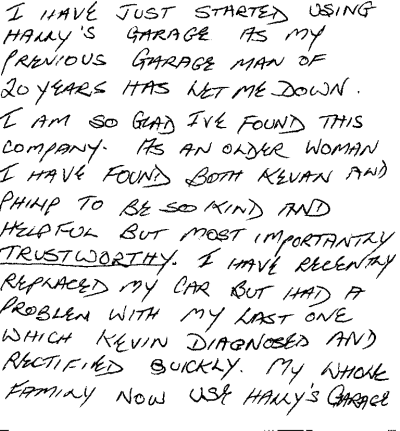 I HAVE JUST STARTED USING
HARRY'S GARAGE AS MY
PREVIOUS GARAGE MAN OF
20 YEARS HAS LET ME DOWN.
I AM SO GLAD I'VE FOUND THIS
COMPANY. AS AN OLDER WOMAN
I HAVE FOUND BOTH KEVAN AND
PHILIP TO BE SO KIND AND
HELPFUL BUT MOST IMPORTANTLY
TRUSTWORTHY. I HAVE RECENTLY
REPLACED MY CAR BUT HAD A
PROBLEM WITH MY LAST ONE
WHICH KEVIN DIAGNOSED AND
RECTIFIED QUICKLY. MY WHOLE
FAMILY NOW USE HARRY'S GARAGE